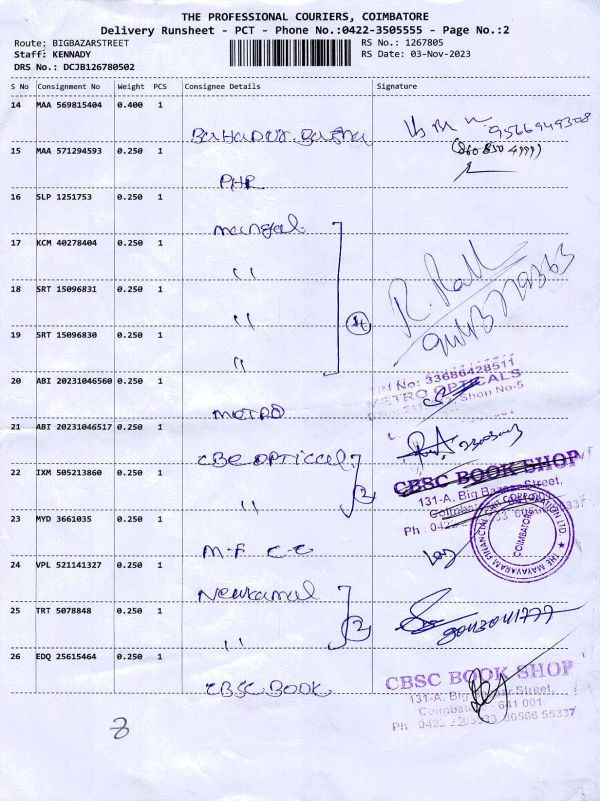 THE PROFESSIONAL COURIERS, COIMBATORE
Delivery Runsheet - PCT - Phone No.:0422-3505555 - Page No.:2
Route: BIGBAZARSTREET
RS No.: 1267805
Staff: KENNADY
RS Date: 03-Nov-2023
DRS No.: DCJB126780502
S No Consignment No Weight PCS Consignee Details Signature
14 MAA 569815404 0.400 1
9566949308
15 MAA 571294593 0.250 1
PHR
16 SLP 1251753 0.250 1
mangal
17 KCM 40278404 0.250 1
"
18 SRT 15096831 0.250 1
"
19 SRT 15096830 0.250 1
"
20 ABI 20231046560 0.250 1
No: 33686428511
METRO OPTICALS
Shop No-5
METRO
21 ABI 20231046517 0.250 1
CBE OPTICAL
22 IXM 505213860 0.250 1
CBSC BOOK SHOP
131-A, Big Bazaar Street,
"
2
23 MYD 3661035 0.250 1
M.F. C.C
24 VPL 521141327 0.250 1
THE MAYAVARAM FINANCIAL CHIT CORPORATION LTD.
COIMBATORE
Newkamal
25 TRT 5078848 0.250 1
"
2
26 EDQ 25615464 0.250 1
CBSC BOOK
CBSC BOOK SHOP
131-A, Big Bazaar Street,
Coimbatore - 641 001
Ph : 0422 - 80566 55337
8